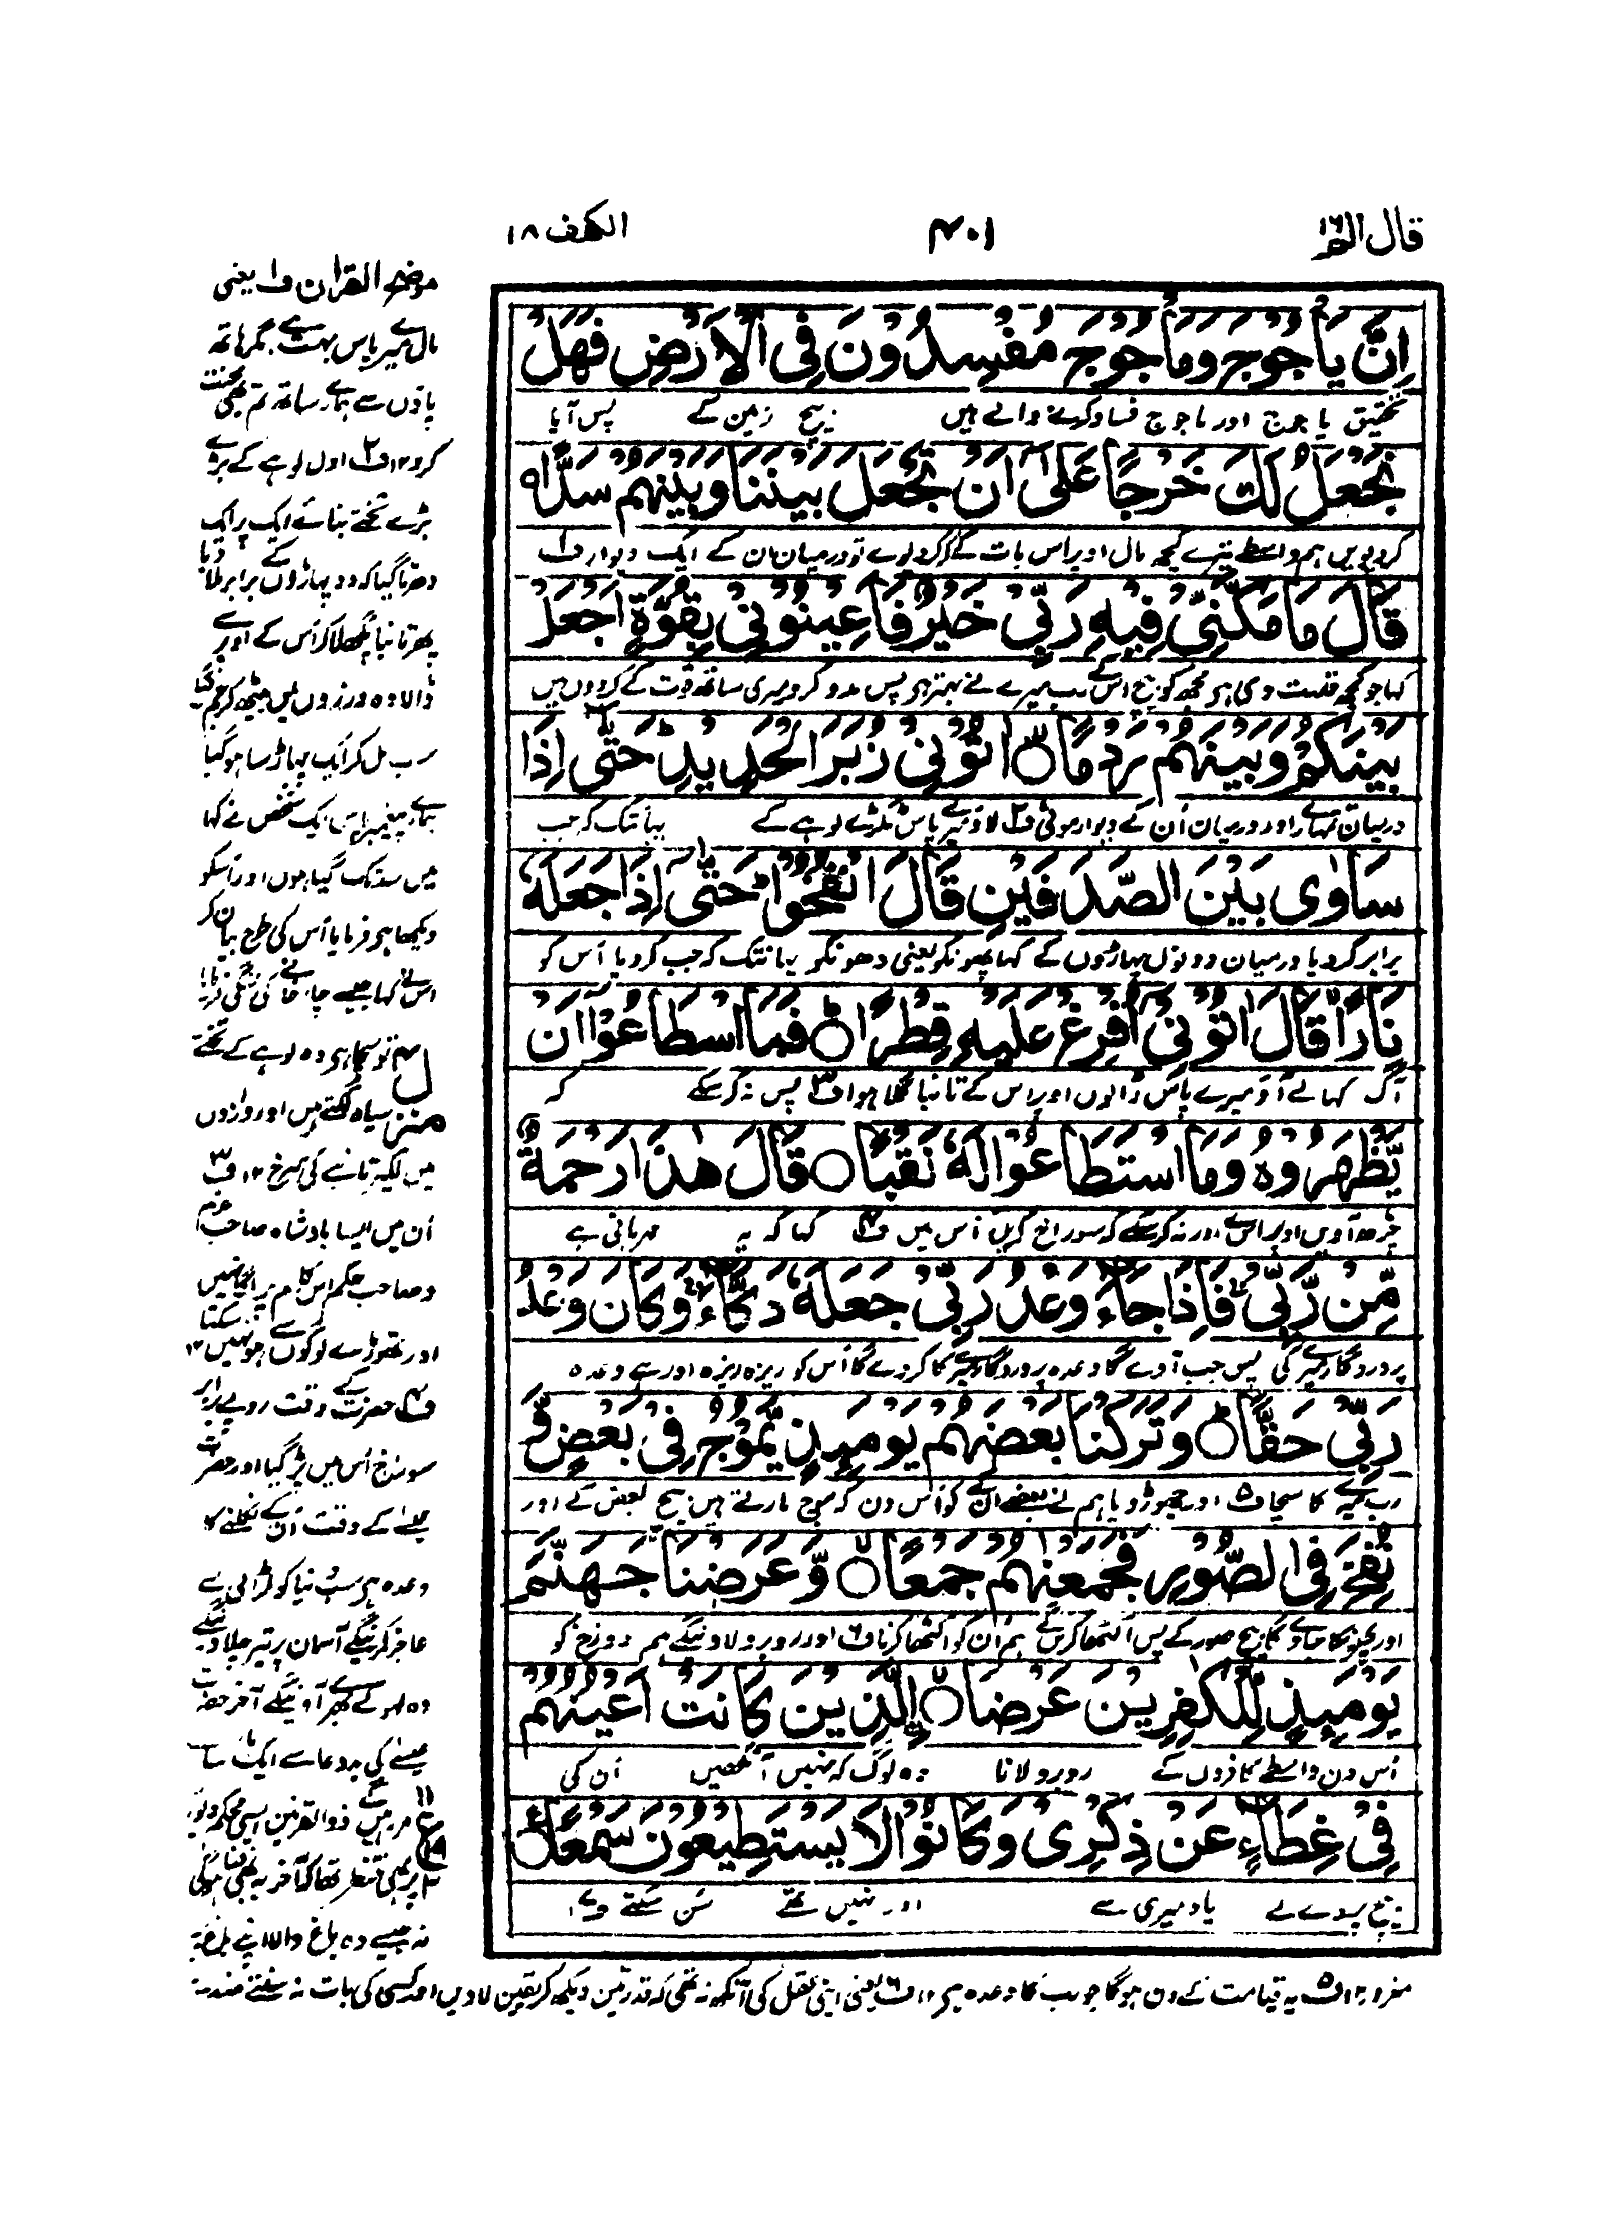 قال الم ١٦
٤٠١
الكهف ١٨
اِنَّ يَاْجُوْجَ وَمَاْجُوْجَ مُفْسِدُوْنَ فِى الْاَرْضِ فَهَلْ
تحقیق یاجوج اور ماجوج فساد کرنے والے ہیں بیچ زمین کے پس آیا
نَجْعَلُ لَكَ خَرْجًا عَلٰٓى اَنْ تَجْعَلَ بَيْنَنَا وَبَيْنَهُمْ سَدًّا ۹
کر دیویں ہم واسطے تیرے کچھ مال اوپر اس بات کے کہ کر دیوے تو درمیان ان کے ایک دیوار ف۱
قَالَ مَا مَكَّنِّىْ فِيْهِ رَبِّىْ خَيْرٌ فَاَعِيْنُوْنِىْ بِقُوَّةٍ اَجْعَلْ
کہا جو کچھ قدرت دی ہے مجھ کو بیچ اس کے رب میرے نے بہتر ہے پس مدد کرو میری ساتھ قوت کے کر دوں میں
بَيْنَكُمْ وَبَيْنَهُمْ رَدْمًا ۝ اٰتُوْنِىْ زُبَرَ الْحَدِيْدِ ؕ حَتّٰٓى اِذَا
درمیان تمہارے اور درمیان اُن کے دیوار موٹی ف۲ لاؤ میرے پاس ٹکڑے لوہے کے یہانتک کہ جب
سَاوٰى بَيْنَ الصَّدَفَيْنِ قَالَ انْفُخُوْا ؕ حَتّٰٓى اِذَا جَعَلَهٗ
برابر کر دیا درمیان دونوں پہاڑوں کے کہا پھونکو یعنی دھونکو یہانتک کہ جب کر دیا اُس کو
نَارًا قَالَ اٰتُوْنِىْٓ اُفْرِغْ عَلَيْهِ قِطْرًا ۝ فَمَا اسْطَاعُوْٓا اَنْ
آگ کہا لے آؤ میرے پاس ڈالوں اوپر اس کے تانبا گلا ہوا ف۳ پس نہ کر سکے کہ
يَّظْهَرُوْهُ وَمَا اسْتَطَاعُوْا لَهٗ نَقْبًا ۝ قَالَ هٰذَا رَحْمَةٌ
چڑھ آویں اوپر اسکے اور نہ کر سکے کہ سوراخ کریں اُس میں ف۴ کہا کہ یہ مہربانی ہے
مِّنْ رَّبِّىْ ۚ فَاِذَا جَآءَ وَعْدُ رَبِّىْ جَعَلَهٗ دَكَّآءَ ۚ وَكَانَ وَعْدُ
پروردگار میرے کی پس جب آوے گا وعدہ پروردگار میرے کا کر دے گا اُس کو ریزہ ریزہ اور ہے وعدہ
رَبِّىْ حَقًّا ۝ وَتَرَكْنَا بَعْضَهُمْ يَوْمَئِذٍ يَّمُوْجُ فِىْ بَعْضٍ وَّ
رب میرے کا سچا ف۵ اور چھوڑ دیا ہم نے بعضے ان کے کو اُس دن کہ موج مارتے ہیں بیچ بعض کے اور
نُفِخَ فِى الصُّوْرِ فَجَمَعْنٰهُمْ جَمْعًا ۝ وَّعَرَضْنَا جَهَنَّمَ
اور پھونکا جاوے گا بیچ صور کے پس اکٹھا کرینگے ہم اُن کو اکٹھا کرنا ف۶ اور روبرو لاوینگے ہم دوزخ کو
يَوْمَئِذٍ لِّلْكٰفِرِيْنَ عَرْضًا ۝ الَّذِيْنَ كَانَتْ اَعْيُنُهُمْ
اُس دن واسطے کافروں کے روبرو لانا وہ لوگ کہ تھیں آنکھیں اُن کی
فِىْ غِطَآءٍ عَنْ ذِكْرِىْ وَكَانُوْا لَا يَسْتَطِيْعُوْنَ سَمْعًا ۝
بیچ پردے کے یاد میری سے اور نہیں تھے سُن سکتے
موضح القرآن ف۱ یعنی
مال میرے پاس بہت ہے مگر ہاتھ
پاؤں سے ہمارے ساتھ تم بھی محنت
کرو ۱۲ ف۲ اول لوہے کے بڑے
بڑے تختے بنائے ایک پر ایک
دھرتا گیا کہ دو پہاڑوں کے برابر ملا دیا
پھر تانبا پگھلا کر اُس کے اوپر سے
ڈالا وہ درزوں میں بیٹھ کر جم گیا
سب مل کر ایک پہاڑ سا ہو گیا
ہمارے پیغمبر پاس ایک شخص نے کہا
میں سد تک گیا ہوں اور اُسکو
دیکھا ہے فرمایا اُس کی طرح بیان کر
اس نے کہا جیسے چار خانے کی لنگی
تو سچا ہے وہ لوہے کے تختے
منزل ۴
سیاہ لگتے ہیں اور درزوں
میں لکیر تانبے کی سرخ ۱۲ ف۳
اُن میں ایسا بادشاہ صاحب عزم
و صاحب حکم اس کام پر
اور تھوڑے لوگوں سے ہو نہیں سکتا ۱۲
ف۴ حضرت کے وقت روپے برابر
سوراخ اُس میں پڑ گیا اور حضرت
عیسیٰ کے وقت اُن کے نکلنے کا
وعدہ ہے سب دنیا کو لڑائی سے
عاجز کرینگے آسمان پر تیر چلاوینگے
وہ لہو سے بھرے آوینگے آخر حضرت
عیسیٰ کی بددعا سے ایک
مر رہیں گے ذوالقرنین ایسی محکم دیوار
پر بھی
نہ جیسے وہ باغ والا اپنے باغ پر
مغرور ۱۲ ف۵ یہ قیامت کے دن ہوگا جو سب کا وعدہ ہے ۱۲ ف۶ یعنی اپنی عقل کی آنکھ نہ تھی کہ قدرتیں دیکھ کر یقین لاویں اور کسی کی بات نہ سنتے